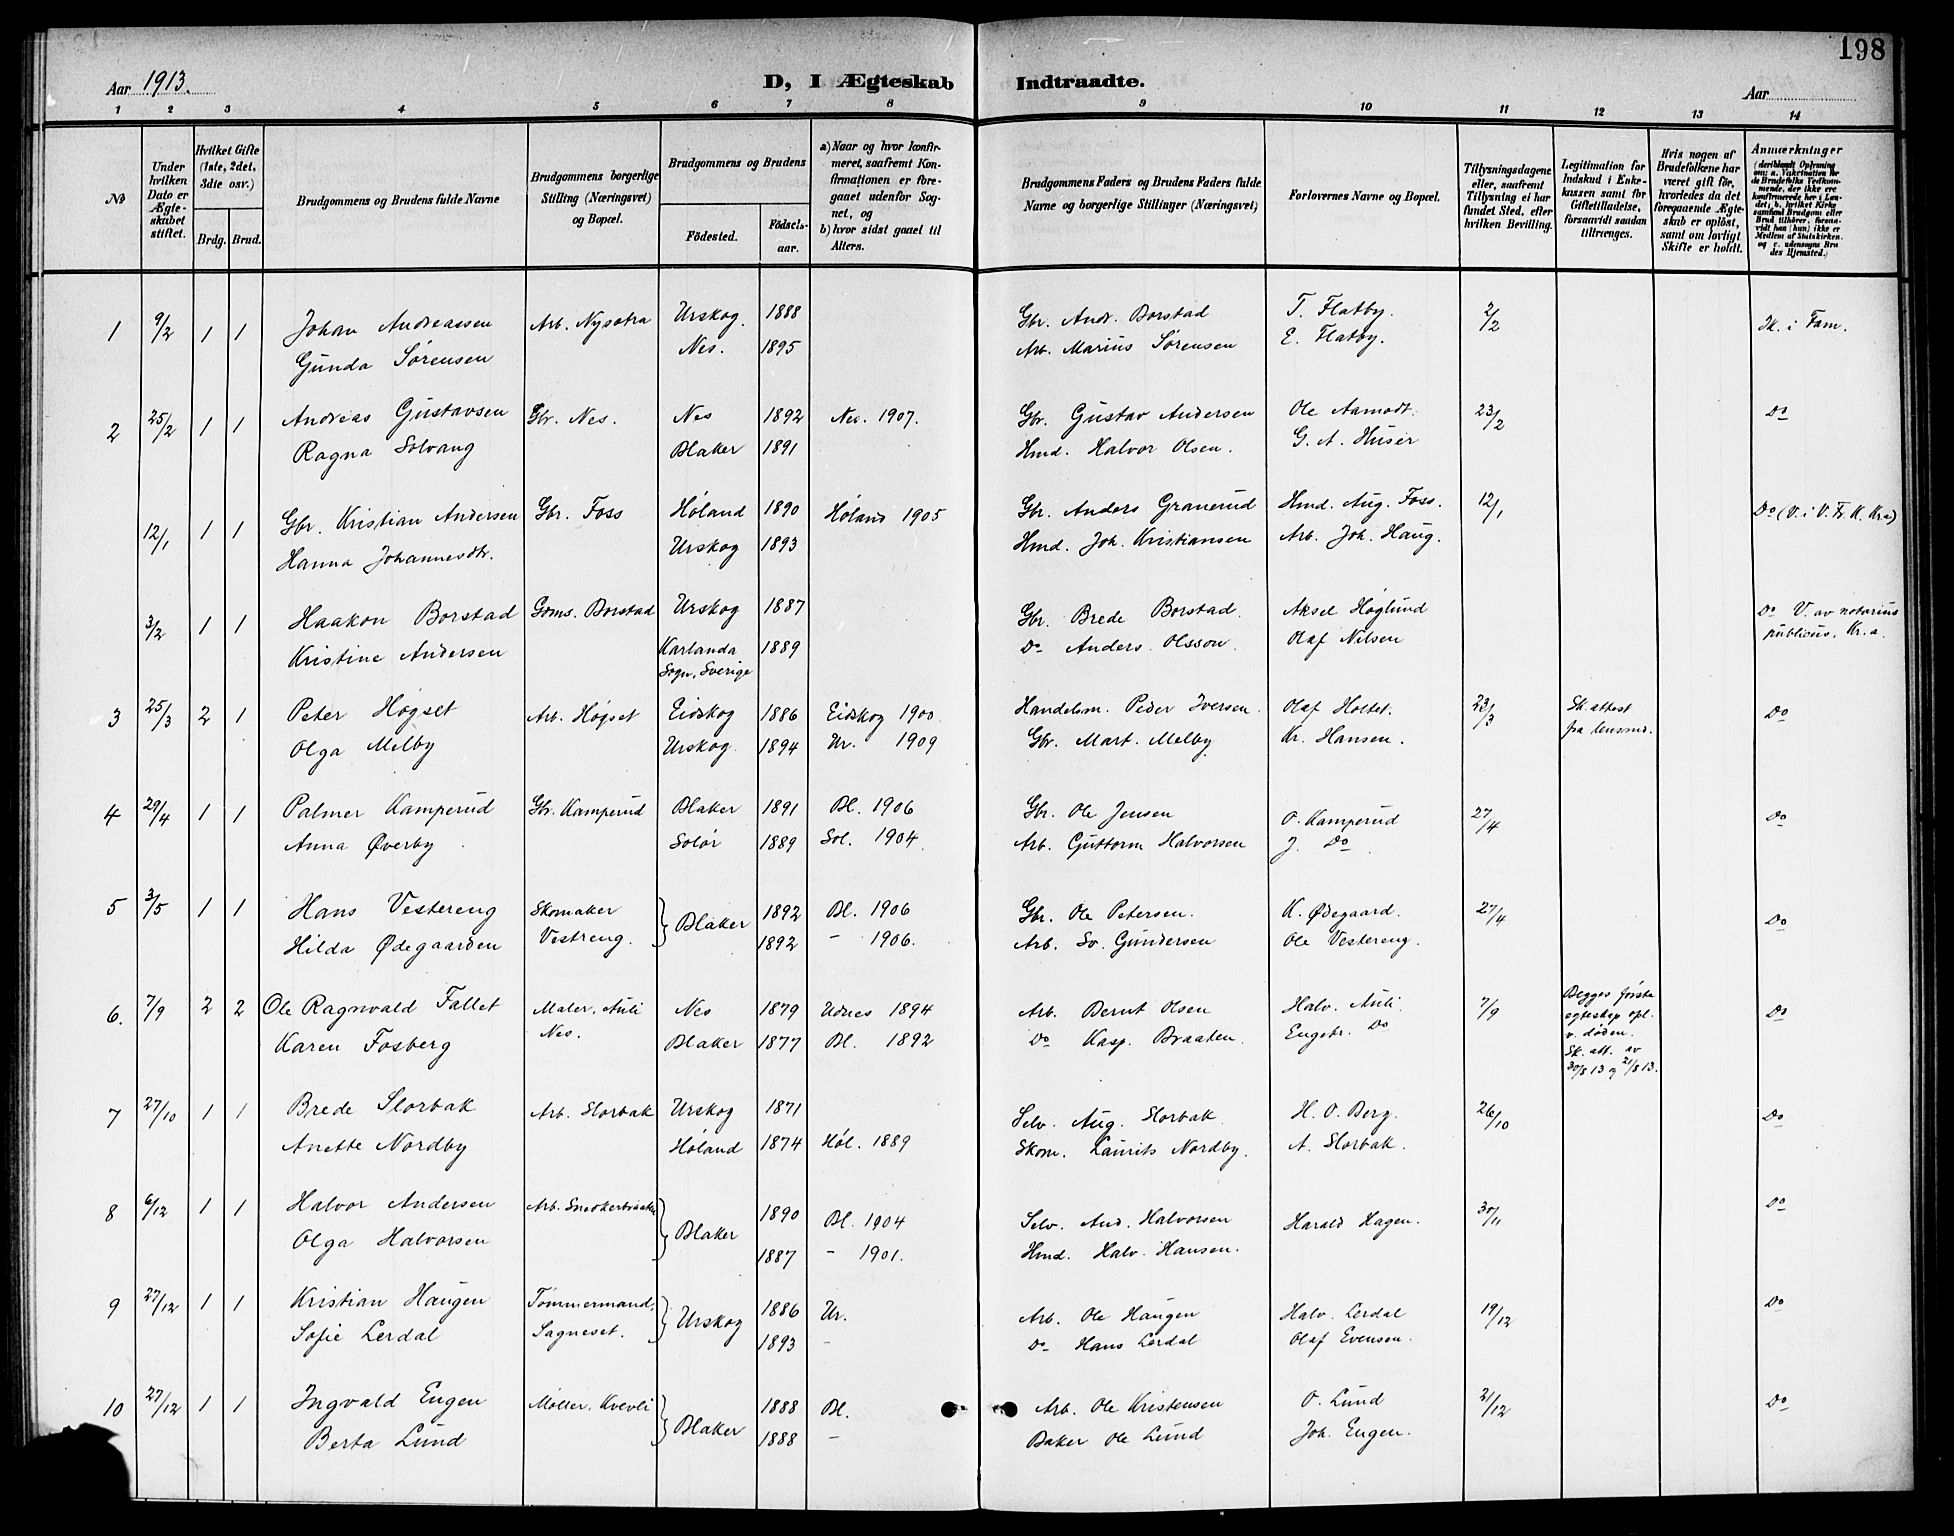 198
Aar 1913.
D, I Ægteskab Indtraadte.
Aar
1 2 3 4 5 6 7 8 9 10 11 12 13 14
No
Under hvilken Dato er Ægteskabet stiftet.
Hvilket Gifte (1ste, 2det, 3die osv.)
Brdg. Brud.
Brudgommens og Brudens fulde Navne
Brudgommens borgerlige Stilling (Næringsvei) og Bopæl.
Brudgommens og Brudens
Födested.
Födselsaar.
a) Naar og hvor konfirmeret, saafremt Konfirmationen er foregaaet udenfor Sognet, og
b) hvor sidst gaaet til Alters.
Brudgommens Faders og Brudens Faders fulde Navne og borgerlige Stillinger (Næringsvei)
Forlovernes Navne og Bopæl.
Tillysningsdagene eller, saafremt Tillysning ei har fundet Sted, efter hvilken Bevilling.
Legitimation for Indskud i Enkekassen samt for Giftetilladelse, forsaavidt saadan tiltrænges.
Hvis nogen af Brudefolkene har været gift för, hvorledes da det foregaaende Ægteskab er oplöst, samt om lovligt Skifte er holdt.
Anmærkninger
(deriblandt Oplysning om: a. Vakcination for de Brudefolks Vedkommende, der ikke ere konfirmerede her i Landet; b. hvilket Kirkesamfund Brudgom eller Brud tilhörer, forsaavidt han (hun) ikke er Medlem af Statskirken. og c. udensogns Brudes Hjemsted.)
1 9/2 1 1 Johan Andreassen Arb. Nysætra Urskog. 1888 Gbr. Andr. Borstad T. Flatby. 2/2 Ik. i Fam.
Gunda Sørensen Nes. 1895 Arb. Marius Sørensen E. Flatby.
2 25/2 1 1 Andreas Gustavsen Gbr. Nes. Nes 1892 Nes. 1907. Gbr. Gustav Andersen Ole Aamodt. 23/2 Do
Ragna Solvang Blaker 1891 Hmd. Halvor Olsen. G. A. Huser
12/1 1 1 Gbr. Kristian Andersen Gbr. Foss Høland 1890 Høland 1905 Gbr. Anders Granerud Hmd. Aug. Foss. 12/1 Do (V. i V. Fr. K. Kra)
Hanna Johannesdtr. Urskog 1893 Hmd. Joh. Kristiansen Arb. Joh. Haug.
3/2 1 1 Haakon Borstad Borstad Urskog 1887 Gbr. Brede Borstad. Aksel Høglund Do V. av notarius
Kristine Andersen Karlanda Sogn, Sverige 1889 Do Anders Olsson. Olaf Nilsen publicus, Kr.a.
3 25/3 2 1 Peter Høgset Arb. Høgset Eidskog 1886 Eidskog 1900. Handelsm. Peder Iversen. Olaf Holtet. 23/3 Sk. attest Do
Olga Melby Urskog. 1894 Ur. 1909 Gbr. Mart. Melby Kr. Hansen. fra lensmd.
4 29/4 1 1 Palmer Kamperud Gbr. Kamperud Blaker 1891 Bl. 1906 Gbr. Ole Jensen O. Kamperud 27/4 Do
Anna Øverby Solør 1889 Sol. 1904. Arb. Guttorm Halvorsen J. Do
5 3/5 1 1 Hans Vestereng Skomaker Blaker 1892 Bl. 1906 Gbr. Ole Petersen. K. Ødegaard. 27/4 Do
Hilda Ødegaarden Vestreng. 1892 - 1906. Arb. Sv. Gundersen Ole Vestereng.
6. 7/9 2 2 Ole Ragnvald Fallet Maler, Auli Nes 1879 Udnes 1894 Arb. Bernt Olsen Halv. Auli 7/9 Begges første Do
Karen Fosberg Nes. Blaker 1877 Bl. 1892 Do Kasp. Braaten. Engebr. Do egteskap opl. v. døden.
Sk. att. av 30/8 13 og 21/8 13.
7 27/10 1 1 Brede Slorbak Arb. Slorbak Urskog 1871 Selv. Aug. Slorbak H. O. Berg. 26/10 Do
Anette Nordby Høland 1874 Høl. 1889 Skom. Laurits Nordby. A. Slorbak.
8 6/12 1 1 Halvor Andersen Arb. Snekkerbraaten Blaker 1890 Bl. 1904 Selv. And. Halvorsen Harald Hagen. 30/11 Do
Olga Halvorsen 1887 - 1901. Hmd. Halv. Hansen.
9 27/12 1 1 Kristian Haugen Tømmermand, Urskog 1886 Ur. Arb. Ole Haugen Halv. Lerdal 19/12 Do
Sofie Lerdal Sagneset. 1893 - Do Hans Lerdal Olaf Evensen.
10 27/12 1 1 Ingvald Engen Møller, Kvevli Blaker 1888 Bl. Arb. Ole Kristensen O. Lund 21/12 Do
Berta Lund 1888 - Baker Ole Lund Joh. Engen.